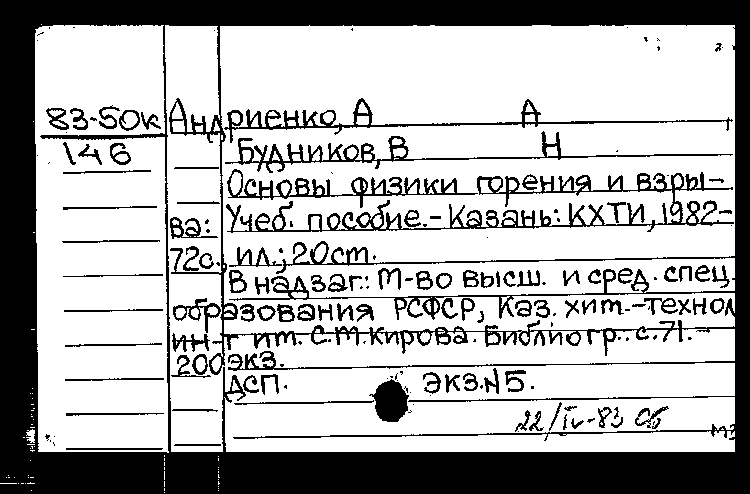 83-50к Андриенко, А А
146 Будников, В Н
Основы физики горения и взры-
ва: Учеб. пособие.- Казань: КХТИ, 1982-
72с., ил.; 20ст.
В надзаг.: М-во высш. и сред. спец.
образования РСФСР, Каз. хит.-технол
ин-т ит. С.М.Кирова. Библиогр.: с.71.-
200 экз.
ДСП. ЭКЗ.N5.
22/IV-83 Сб